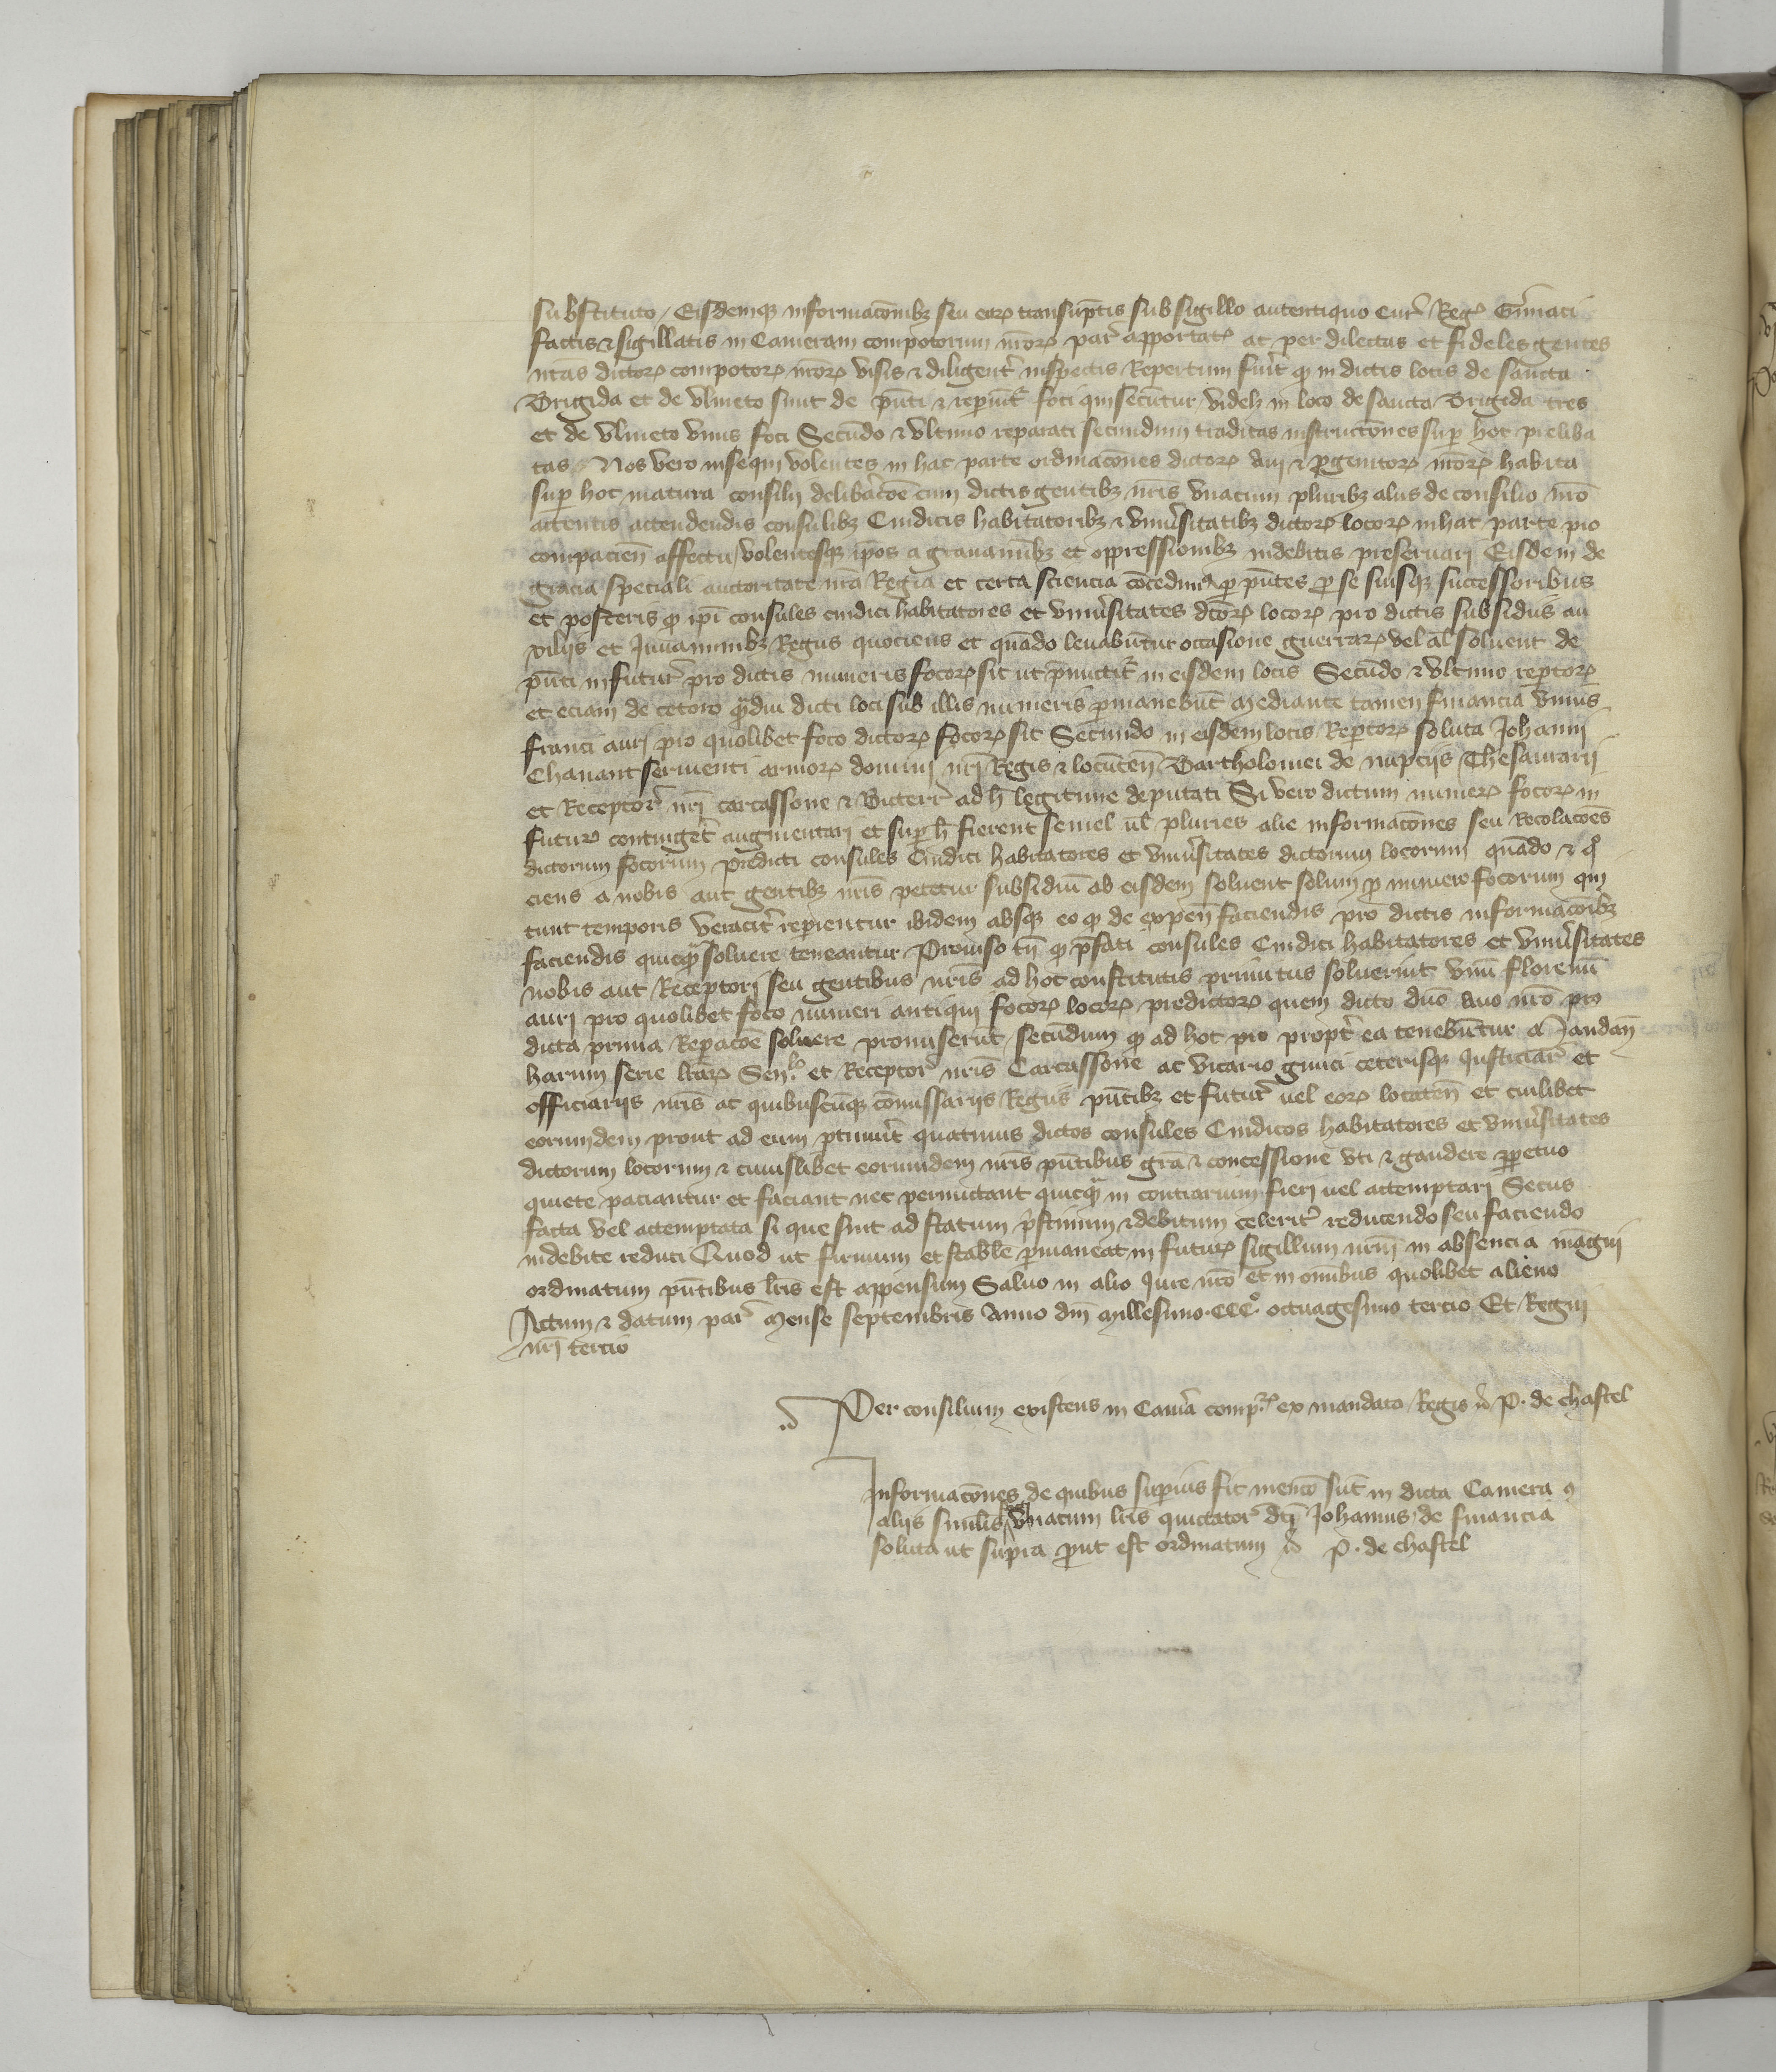 substituto / Eisdemqꝫ informacõibꝫ seu eoꝝ transũptis sub sigillo autentiquo Cur̉ Reg̉
factis ⁊ sigillatis in Cameram compotorum nr̃oꝝ par̉ apportat̉ ac per dilectas et fideles gentes
nr̃as dictoꝝ compotoꝝ nr̃oꝝ visis ⁊ diligent̉ inspectis Repertum fuit ꝙ in dictis locis de sancta
Brigida et de vlmeto sunt de pñti ⁊ reꝑiũt̉ foci qui secũtur videlꝫ in loco de sancta Brigida tres
et de vlmeto vnus foci Secũdo ⁊ vltimo reparati secundum traditas instructõnes suꝑ hoc preliba
tas / Nos vero insequi volentes in hac parte ordinacõnes dictoꝝ aui ⁊ ꝓgenitoꝝ nr̃oꝝ habita
suꝑ hoc matura consilij delibacõe cum dictis gentibꝫ nr̃is vnacum pluribꝫ alijs de consilio nr̃o
attentis attendendis consulibꝫ Cindicis habitatoribꝫ ⁊ vniu̾sitatibꝫ dictoꝝ locoꝝ in hac parte pio
compacien̄ affectu / volentesqꝫ ip̃os a grauaminibꝫ et oppressionibꝫ indebitis preseruari Eisdem de
gracia speciali auctoritate nr̃a Regia et certa sciencia cõcedim̉ ꝑ pñtes ꝓ se suisqꝫ successoribus
et posteris ꝙ ip̃i consules cindici habitatores et vniu̾sitates dc̃oꝝ locoꝝ pro dictis subsidijs au
xilijs et Juuaminibꝫ Regijs quociens et quãdo leuabũtur occasione guerraꝝ vel al̃ soluent de
pñti in futur̉ pro dictis numeris focoꝝ sic ut p̃mittit̉ in eisdem locis Secũdo ⁊ vltimo reptoꝝ
et eciam de cetero qͣ̃diu dicti loci sub illis numeris ꝑmanebũt Mediante tamen financia vnius
franci auri pro quolibet foco dictoꝝ focoꝝ sic Secundo in eisdem locis Reꝑtoꝝ soluta Johanni
Chauant seruienti armoꝝ domini nr̃i Regis ⁊ locũten̄ Bartholomei de nupcijs Thesaurarij
et Receptor̉ nr̃i carcassone ⁊ Bicterr̉ ad h̃ legitime deputati Si vero dictum numeꝝ focoꝝ in
futuꝝ continget̉ augmentari et suꝑ h̃ fierent semel ul̃ pluries alie informacõnes seu Recolacões
dictorum focorum predicti consules Cindici habitatores et vniu̾sitates dictorum locorum quãdo ⁊ qͦ
ciens a nobis aut gentibꝫ nr̃is petetur subsidiũ ab eisdem soluent solum ꝓ numero focorum qui
tunc temporis veracit̉ reꝑientur ibidem absqꝫ eo ꝙ de expen̄ faciendis pro dictis informacõibꝫ
faciendis quicqͣ̃ soluere teneantur Prouiso tñ ꝙ p̃fati consules Cindici habitatores et vniu̾sitates
nobis aut Receptori seu gentibus nr̃is ad hoc constitutis primitus soluerint vnũ florenũ
auri pro quolibet foco numeri antiqui focoꝝ locoꝝ predictoꝝ quem dicto dño auo nr̃o pro
dicta prima Reꝑacõe soluere promiserũt secũdum ꝙ ad hoc pro propt̉ ea tenebũtur Mandan̄
harum serie lr̃aꝝ Sen̄.ˡᵒ et Receptor̉ nr̃is Carcassone ac vicario ceterisqꝫ Justiciar̉ et
officiarijs nr̃is ac quibuscũqꝫ cõmissarijs Regijs pñtibꝫ et futur̉ uel eoꝝ locaten̄ et cuilibet
eorumdem prout ad eum ꝑtinũt quatinus dictos consules Cindicos habitatores et vniu̾sitates
dictorum locorum ⁊ cuiuslibet eorumdem nr̃is pñtibus gr̃a ⁊ concessione vti ⁊ gaudere ꝑpetuo
quiete paciantur et faciant nec permittant quicqͣ̃ in contrarium fieri uel attemptari Secus
facta vel attemptata si que sint ad statum p̃stinum ⁊ debitum celerit̉ reducendo seu faciendo
indebite reduci Quod ut firmum et stabile ꝑmaneat in futuꝝ sigillum nr̃m in absencia magni
ordinatum pñtibus lr̃is est appensum Saluo in alio Jure nr̃o et in omĩbus quolibet alieno
Actum ⁊ datum par̉ Mense septembris Anno dñi Millesimo. CCCᵒ. octuagesimo tercio Et Regni
nr̃i tercio
Per consilium existens in Cam̉a comp.ᵒꝝ ex mandato Regis P. de chastel
Informacõnes de quibus suꝑius fit mencõ sũt in dicta Camera
alijs similib3 vnacum lr̃is quictator̉ dc̃i Johannis de financia
soluta ut supra ꝓut est ordinatum P. de chastel